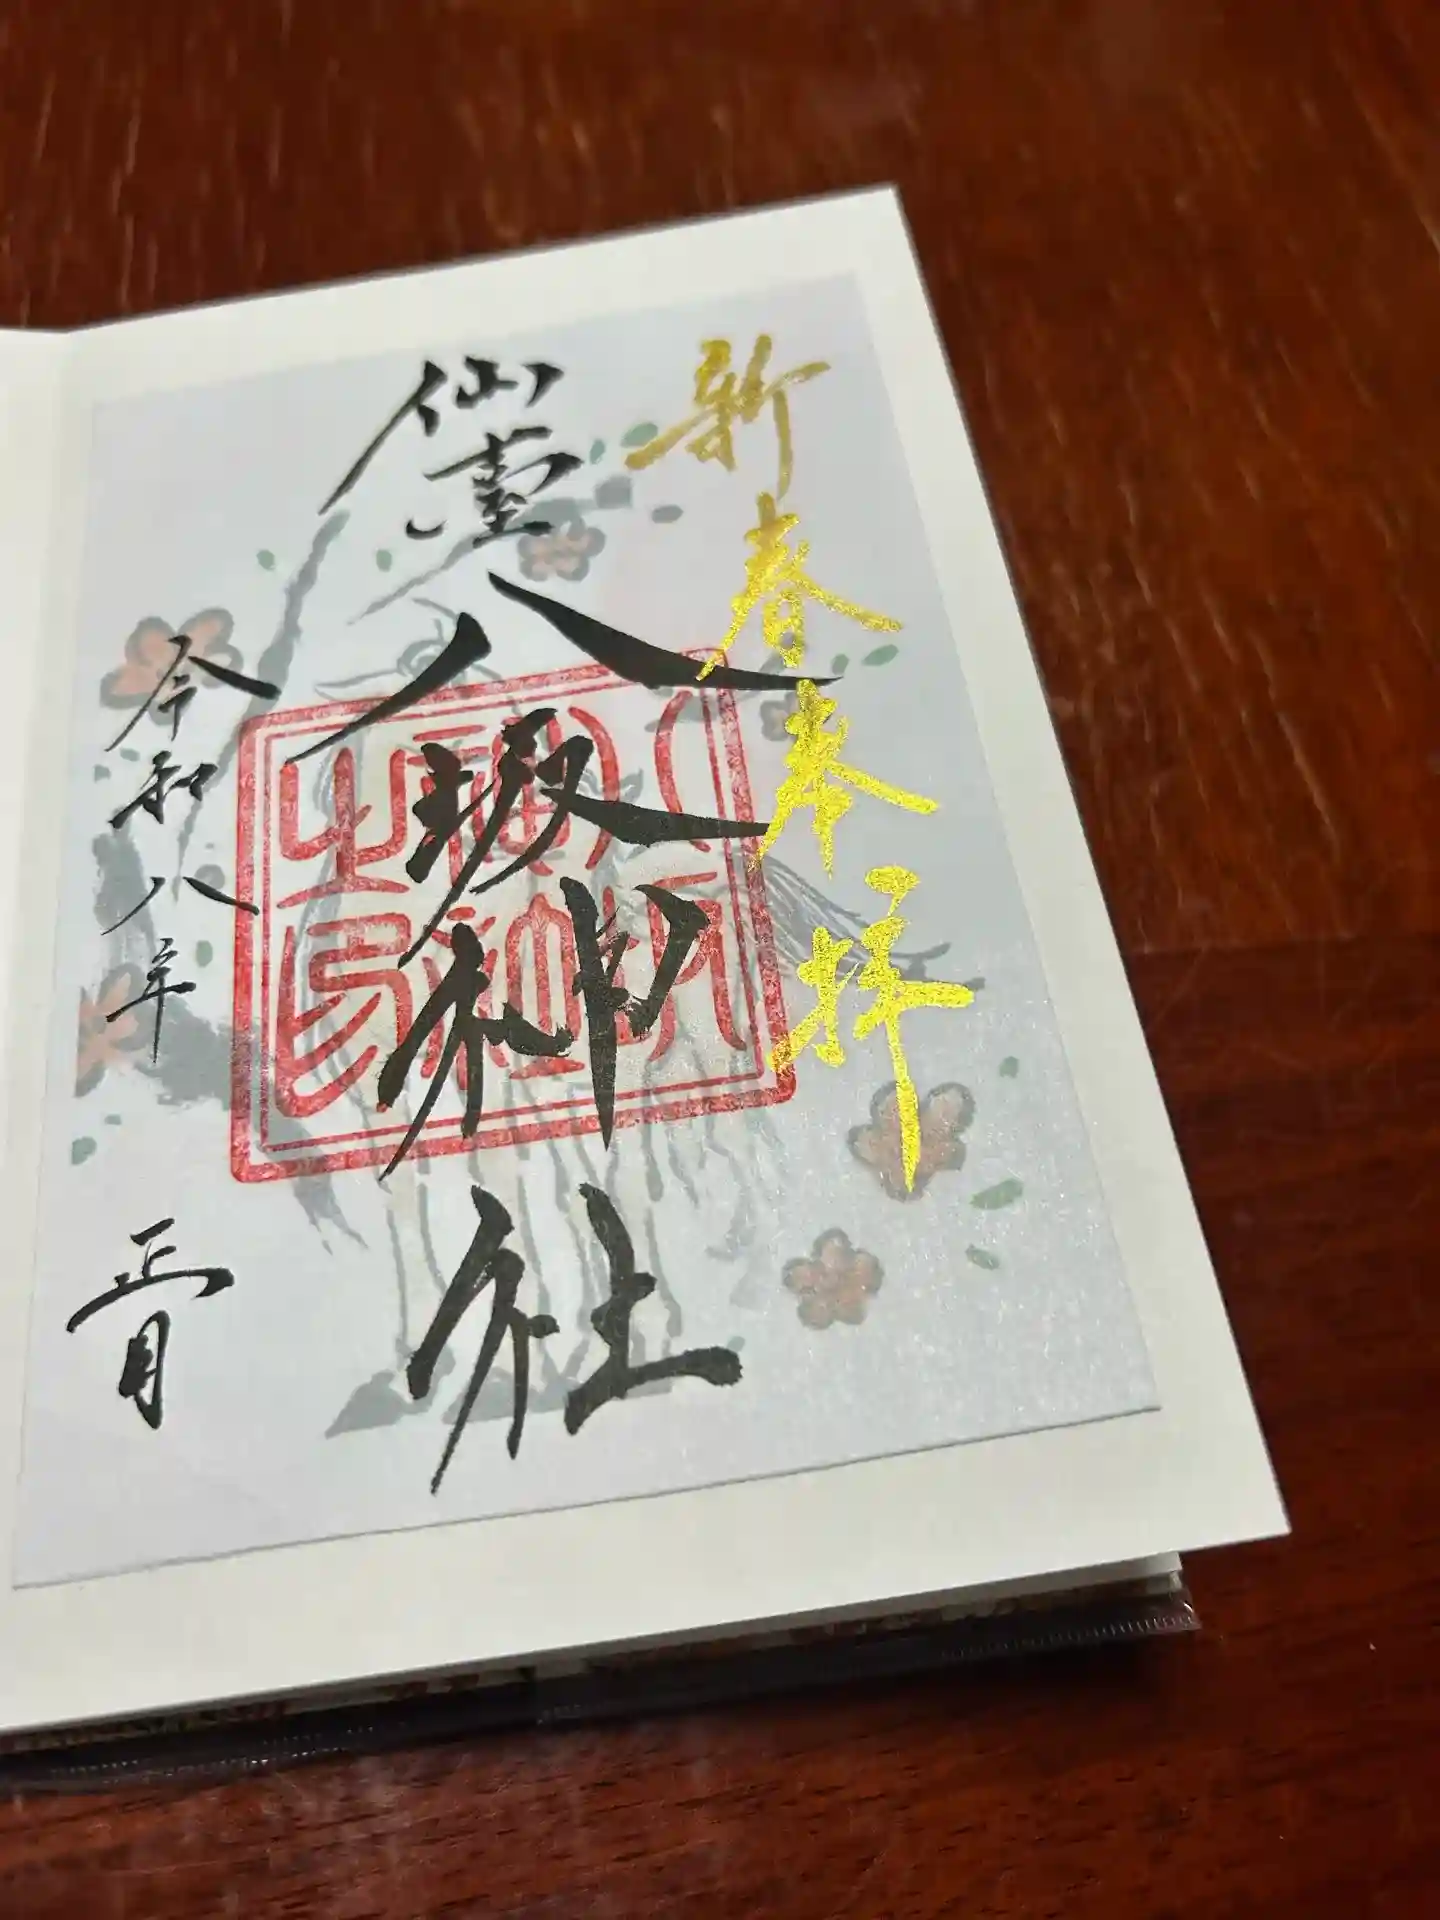 新春奉拝
仙臺
八坂神社
令和八年 正月
八坂
神社
之印